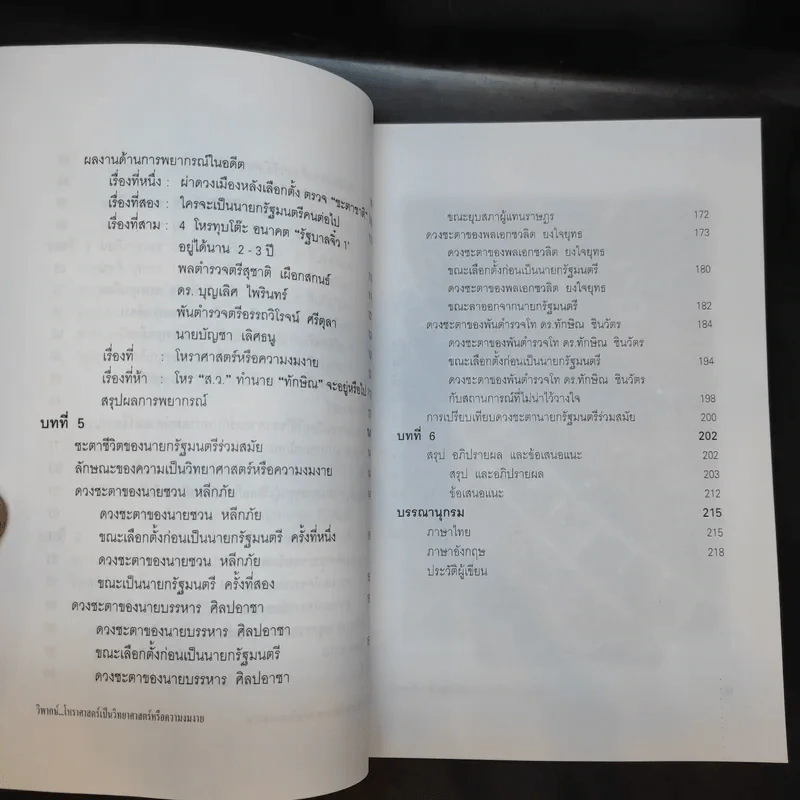 ผลงานด้านการพยากรณ์ในอดีต
เรื่องที่หนึ่ง : ผ่าดวงเมืองหลังเลือกตั้ง ตรวจ "ชะตาชาติ"
เรื่องที่สอง : ใครจะเป็นนายกรัฐมนตรีคนต่อไป
เรื่องที่สาม : 4 โหรทุบโต๊ะ อนาคต "รัฐบาลจิ๋ว 1"
อยู่ได้นาน 2 - 3 ปี
พลตำรวจตรีสุชาติ เผือกสกนธ์
ดร. บุญเลิศ ไพรินทร์
พันตำรวจตรีอรรถวิโรจน์ ศรีตุลา
นายบัญชา เลิศธนู
เรื่องที่ : โหราศาสตร์หรือความงมงาย
เรื่องที่ห้า : โหร "ส.ว." ทำนาย "ทักษิณ" จะอยู่หรือไป
สรุปผลการพยากรณ์
บทที่ 5
ชะตาชีวิตของนายกรัฐมนตรีร่วมสมัย
ลักษณะของความเป็นวิทยาศาสตร์หรือความงมงาย
ดวงชะตาของนายชวน หลีกภัย
ดวงชะตาของนายชวน หลีกภัย
ขณะเลือกตั้งก่อนเป็นนายกรัฐมนตรี ครั้งที่หนึ่ง
ดวงชะตาของนายชวน หลีกภัย
ขณะเป็นนายกรัฐมนตรี ครั้งที่สอง
ดวงชะตาของนายบรรหาร ศิลปอาชา
ดวงชะตาของนายบรรหาร ศิลปอาชา
ขณะเลือกตั้งก่อนเป็นนายกรัฐมนตรี
ดวงชะตาของนายบรรหาร ศิลปอาชา
วิพากษ์...โหราศาสตร์เป็นวิทยาศาสตร์หรือความงมงาย
ขณะยุบสภาผู้แทนราษฎร 172
ดวงชะตาของพลเอกชวลิต ยงใจยุทธ 173
ดวงชะตาของพลเอกชวลิต ยงใจยุทธ
ขณะเลือกตั้งก่อนเป็นนายกรัฐมนตรี 180
ดวงชะตาของพลเอกชวลิต ยงใจยุทธ
ขณะลาออกจากนายกรัฐมนตรี 182
ดวงชะตาของพันตำรวจโท ดร.ทักษิณ ชินวัตร 184
ดวงชะตาของพันตำรวจโท ดร.ทักษิณ ชินวัตร
ขณะเลือกตั้งก่อนเป็นนายกรัฐมนตรี 194
ดวงชะตาของพันตำรวจโท ดร.ทักษิณ ชินวัตร
กับสถานการณ์ที่ไม่น่าไว้วางใจ 198
การเปรียบเทียบดวงชะตานายกรัฐมนตรีร่วมสมัย 200
บทที่ 6 202
สรุป อภิปรายผล และข้อเสนอแนะ 202
สรุป และอภิปรายผล 203
ข้อเสนอแนะ 212
บรรณานุกรม 215
ภาษาไทย 215
ภาษาอังกฤษ 218
ประวัติผู้เขียน